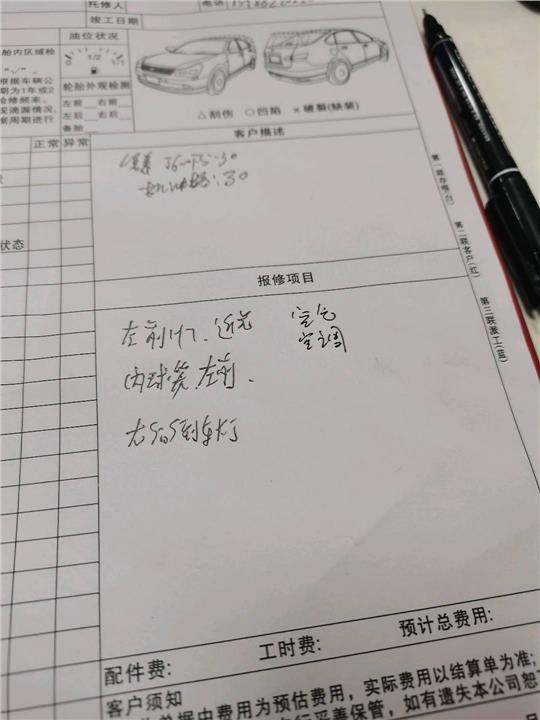 托修人 电话
竣工日期
舱内区域检 油位状况
1/2
0 1/1
根据车辆公
期为1年或2
检修频率。
现滴漏情况。
据周期进行
轮胎外观检测
左前 右前
左后 右后
备胎
△刮伤 ○凹陷 ×破裂(缺装)
正常 异常
客户描述
:30
状态
报修项目
左前 近光 空气
空调
内球笼 左前.
右后倒车灯
第一联存根(白)
第二联客户(红)
第三联派工(蓝)
配件费: 工时费: 预计总费用:
客户须知
单据中费用为预估费用，实际费用以结算单为准；
妥善保管，如有遗失本公司恕